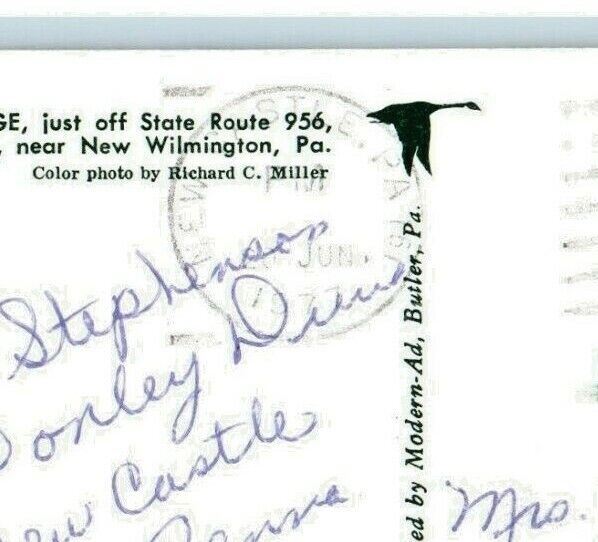 GE, just off State Route 956,
, near New Wilmington, Pa.
Color photo by Richard C. Miller
NEW CASTLE, PA
PM
JUN
1977
Stephenson
Donley Drive
New Castle
Penna
ed by Modern-Ad, Butler, Pa.
Mrs.